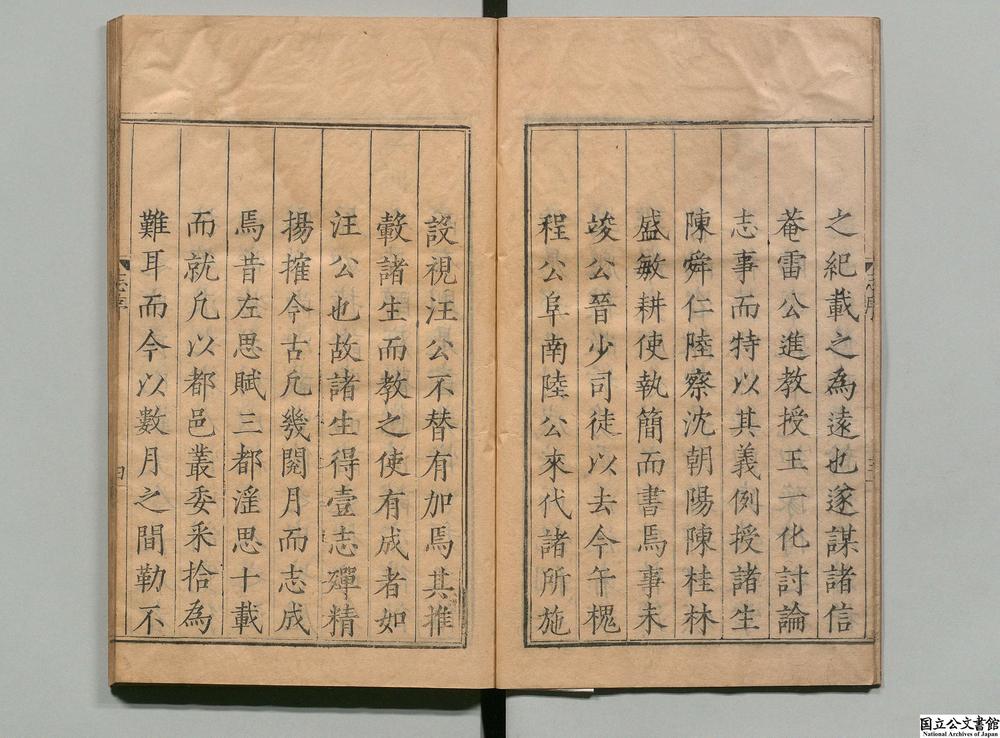 之紀載之為遠也遂謀諸信
菴雷公進教授王一化討論
志事而特以其義例授諸生
陳舜仁陸察沈朝陽陳桂林
盛敏耕使執簡而書焉事未
竣公晉少司徒以去今午槐
程公阜南陸公來代諸所施
設視汪公不替有加焉其推
轂諸生而教之使有成者如
汪公也故諸生得壹志殫精
揚搉今古凢幾閱月而志成
焉昔左思賦三都滛思十載
而就凢以都邑叢委釆拾為
難耳而今以數月之間勒不
四
国立公文書館
National Archives of Japan